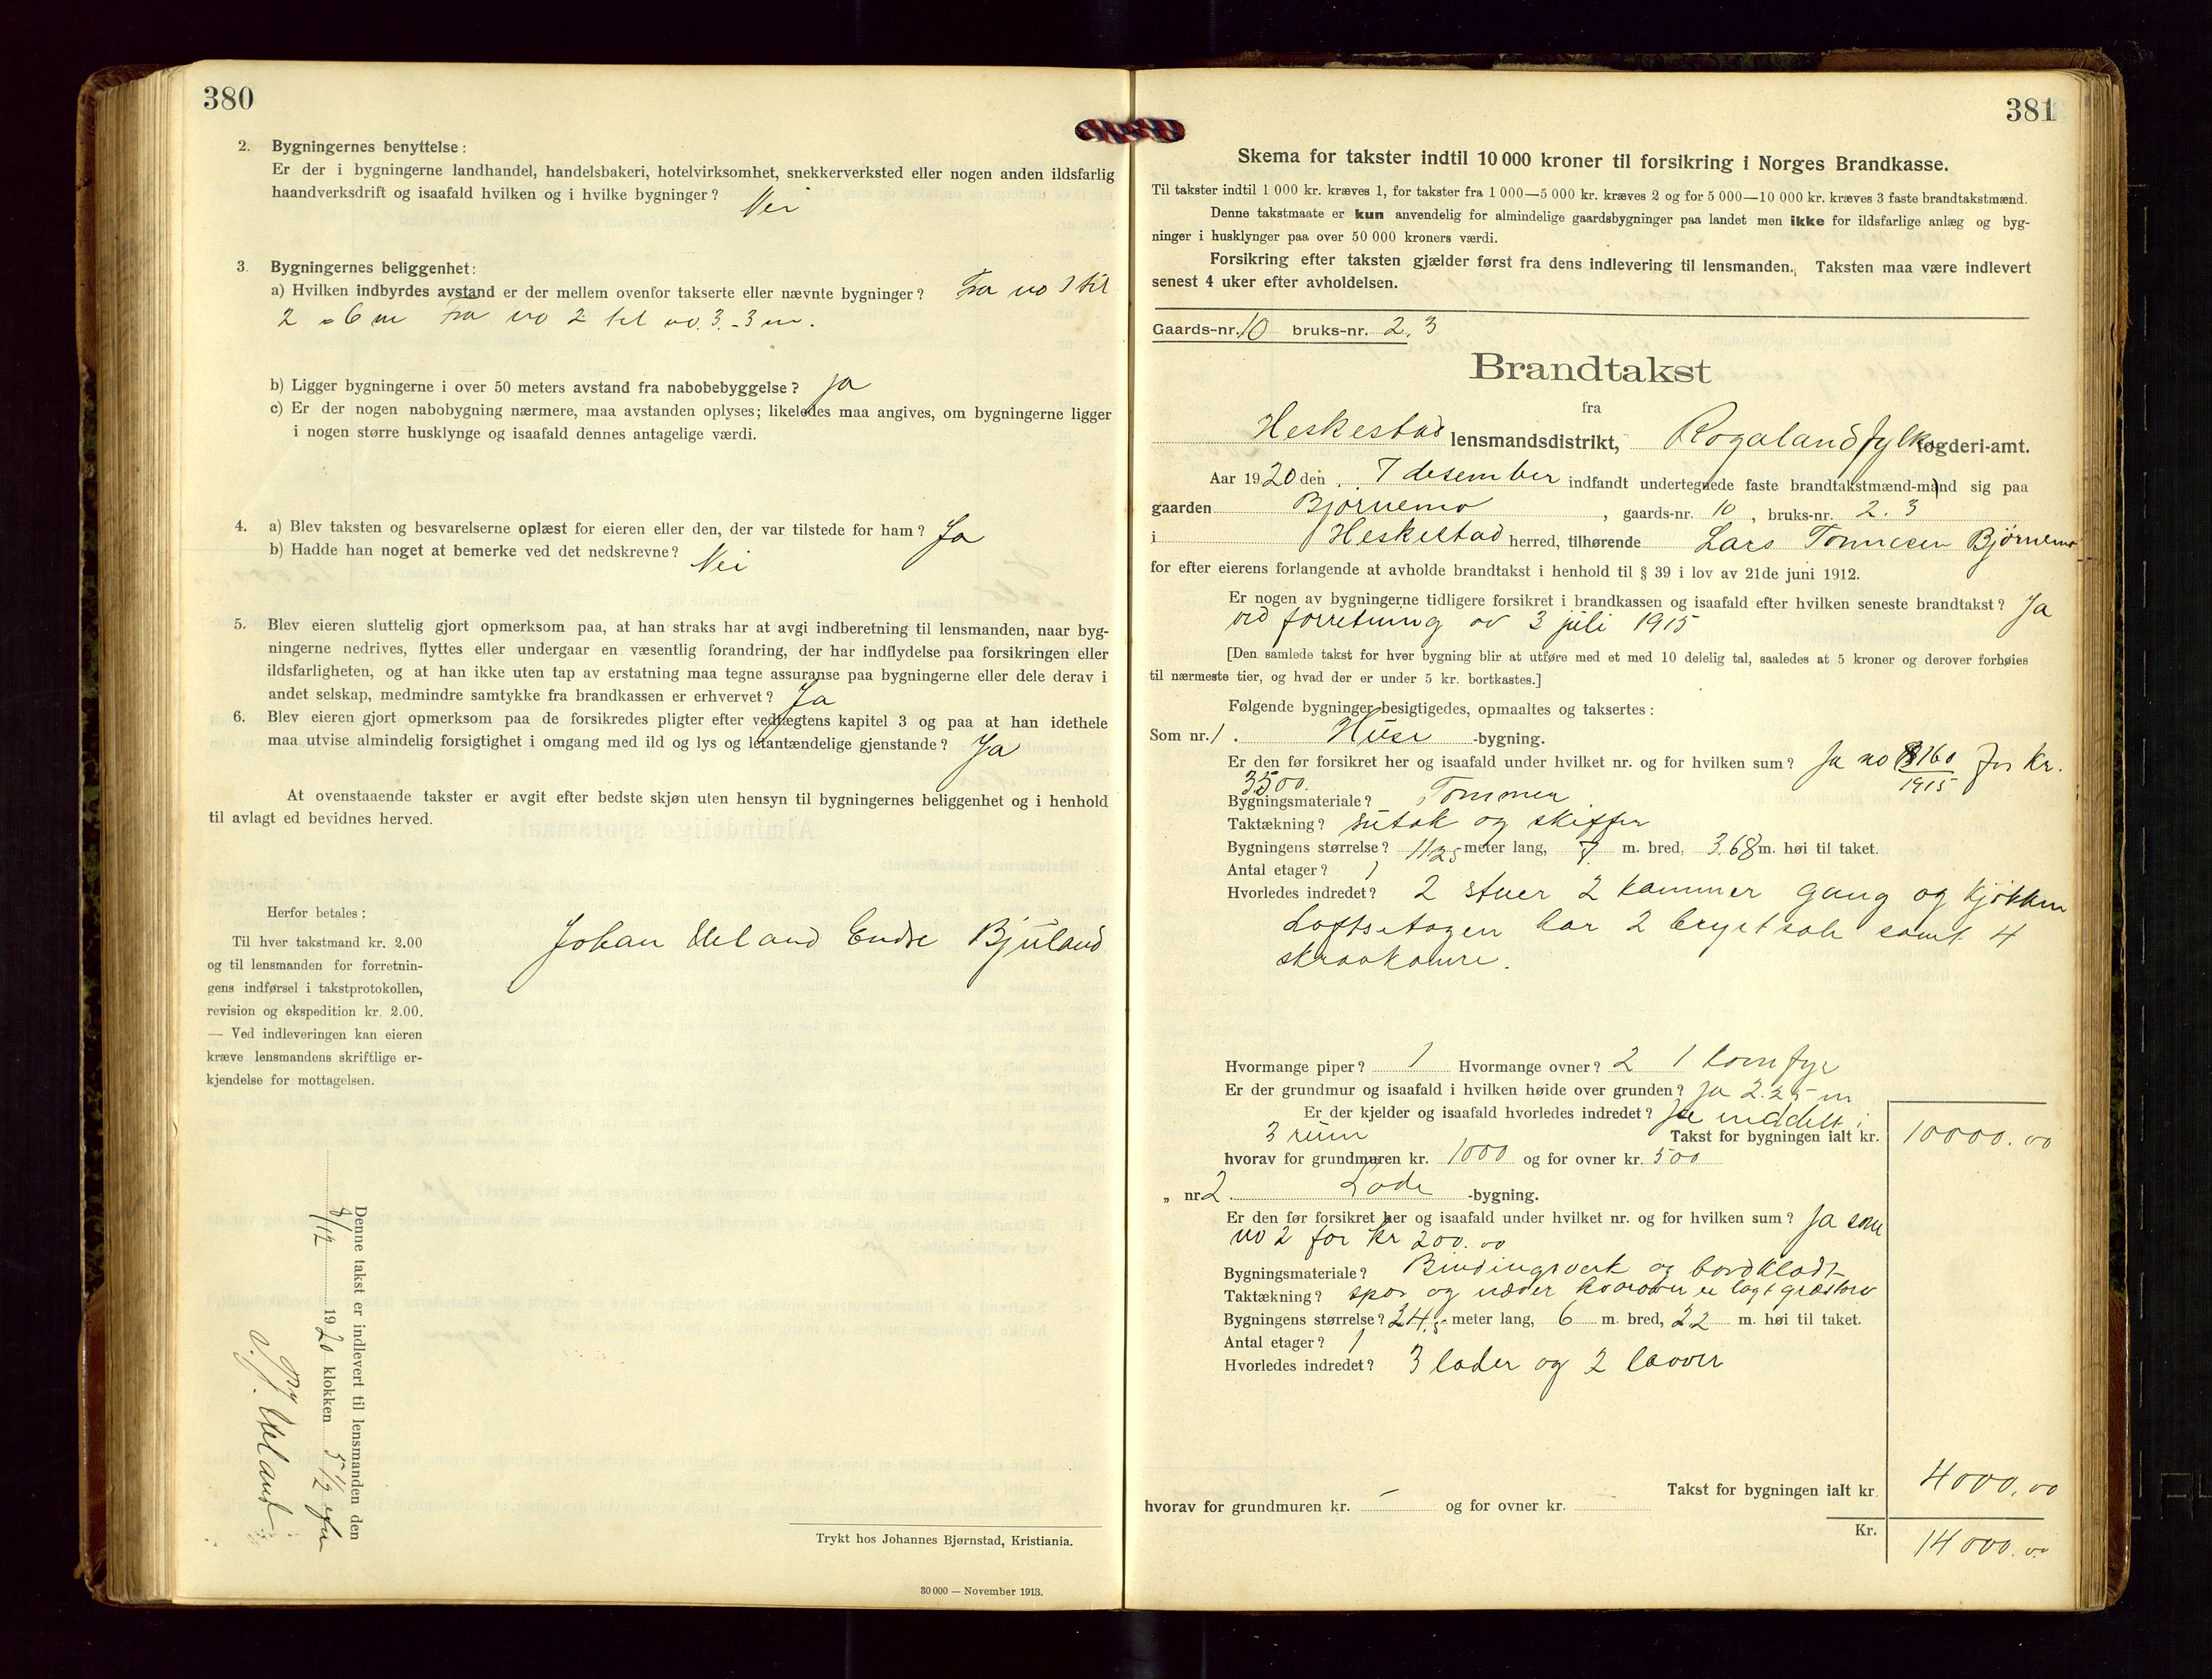 380
2. Bygningernes benyttelse:
Er der i bygningerne landhandel, handelsbakeri, hotelvirksomhet, snekkerverksted eller nogen anden ildsfarlig
haandverksdrift og isaafald hvilken og i hvilke bygninger? Nei
3. Bygningernes beliggenhet:
a) Hvilken indbyrdes avstand er der mellem ovenfor takserte eller nævnte bygninger? Fra no 1 til
2 = 6 m Fra no 2 til no. 3. - 3 m.
b) Ligger bygningerne i over 50 meters avstand fra nabobebyggelse? ja
c) Er der nogen nabobygning nærmere, maa avstanden oplyses; likeledes maa angives, om bygningerne ligger
i nogen større husklynge og isaafald dennes antagelige værdi.
4. a) Blev taksten og besvarelserne oplæst for eieren eller den, der var tilstede for ham? Ja
b) Hadde han noget at bemerke ved det nedskrevne? Nei
5. Blev eieren sluttelig gjort opmerksom paa, at han straks har at avgi indberetning til lensmanden, naar byg-
ningerne nedrives, flyttes eller undergaar en væsentlig forandring, der har indflydelse paa forsikringen eller
ildsfarligheten, og at han ikke uten tap av erstatning maa tegne assuranse paa bygningerne eller dele derav i
andet selskap, medmindre samtykke fra brandkassen er erhvervet? Ja
6. Blev eieren gjort opmerksom paa de forsikredes pligter efter vedtægtens kapitel 3 og paa at han idethele
maa utvise almindelig forsigtighet i omgang med ild og lys og letantændelige gjenstande? Ja
At ovenstaaende takster er avgit efter bedste skjøn uten hensyn til bygningernes beliggenhet og i henhold
til avlagt ed bevidnes herved.
Herfor betales:
Til hver takstmand kr. 2.00
og til lensmanden for forretnin-
gens indførsel i takstprotokollen,
revision og ekspedition kr. 2.00.
— Ved indleveringen kan eieren
kræve lensmandens skriftlige er-
kjendelse for mottagelsen.
Johan Ueland Endre Bjuland
Denne takst er indlevert til lensmanden den
8/12 1920 klokken 5 1/2 efm
Ueland
Trykt hos Johannes Bjørnstad, Kristiania.
30 000 — November 1913.
381
Skema for takster indtil 10 000 kroner til forsikring i Norges Brandkasse.
Til takster indtil 1 000 kr. kræves 1, for takster fra 1 000—5 000 kr. kræves 2 og for 5 000—10 000 kr. kræves 3 faste brandtakstmænd.
Denne takstmaate er kun anvendelig for almindelige gaardsbygninger paa landet men ikke for ildsfarlige anlæg og byg-
ninger i husklynger paa over 50 000 kroners værdi.
Forsikring efter taksten gjælder først fra dens indlevering til lensmanden. Taksten maa være indlevert
senest 4 uker efter avholdelsen.
Gaards-nr. 10 bruks-nr. 2. 3
Brandtakst
fra
Heskestad lensmandsdistrikt, Rogaland fylke fogderi-amt.
Aar 1920 den 7 desember indfandt undertegnede faste brandtakstmænd-mand sig paa
gaarden Bjørnemo, gaards-nr. 10, bruks-nr. 2. 3
i Heskestad herred, tilhørende Lars Tønnesen Bjørnemo
for efter eierens forlangende at avholde brandtakst i henhold til § 39 i lov av 21de juni 1912.
Er nogen av bygningerne tidligere forsikret i brandkassen og isaafald efter hvilken seneste brandtakst? Ja
ved forretning av 3 juli 1915
[Den samlede takst for hver bygning blir at utføre med et med 10 delelig tal, saaledes at 5 kroner og derover forhøies
til nærmeste tier, og hvad der er under 5 kr. bortkastes.]
Følgende bygninger besigtigedes, opmaaltes og taksertes:
Som nr. 1. Huse -bygning.
Er den før forsikret her og isaafald under hvilket nr. og for hvilken sum? Ja no 160/1915 for kr.
3500.
Bygningsmateriale? Tømmer
Taktækning? sutak og skiffer
Bygningens størrelse? 11.25 meter lang, 7 m. bred, 3.68 m. høi til taket.
Antal etager? 1
Hvorledes indredet? 2 stuer 2 kammer gang og kjøkken
Loftsetagen har 2 brystsale samt 4
skraakamre.
Hvormange piper? 1 Hvormange ovner? 2 1 komfyr
Er der grundmur og isaafald i hvilken høide over grunden? ja 2.25 m
Er der kjelder og isaafald hvorledes indredet? Ja inddelt i
3 rum Takst for bygningen ialt kr. 10000.00
hvorav for grundmuren kr. 1000 og for ovner kr. 500
„ nr. 2. Løde -bygning.
Er den før forsikret her og isaafald under hvilket nr. og for hvilken sum? Ja som
no 2 for kr 200.00
Bygningsmateriale? Bindingsverk og bordklædt
Taktækning? spon og næver hvorover er lagt græstorv
Bygningens størrelse? 24.5 meter lang, 6 m. bred, 2.2 m. høi til taket.
Antal etager? 1
Hvorledes indredet? 3 lader og 2 laaver
Takst for bygningen ialt kr. 4000.00
hvorav for grundmuren kr. - og for ovner kr.
Kr. 14000.00